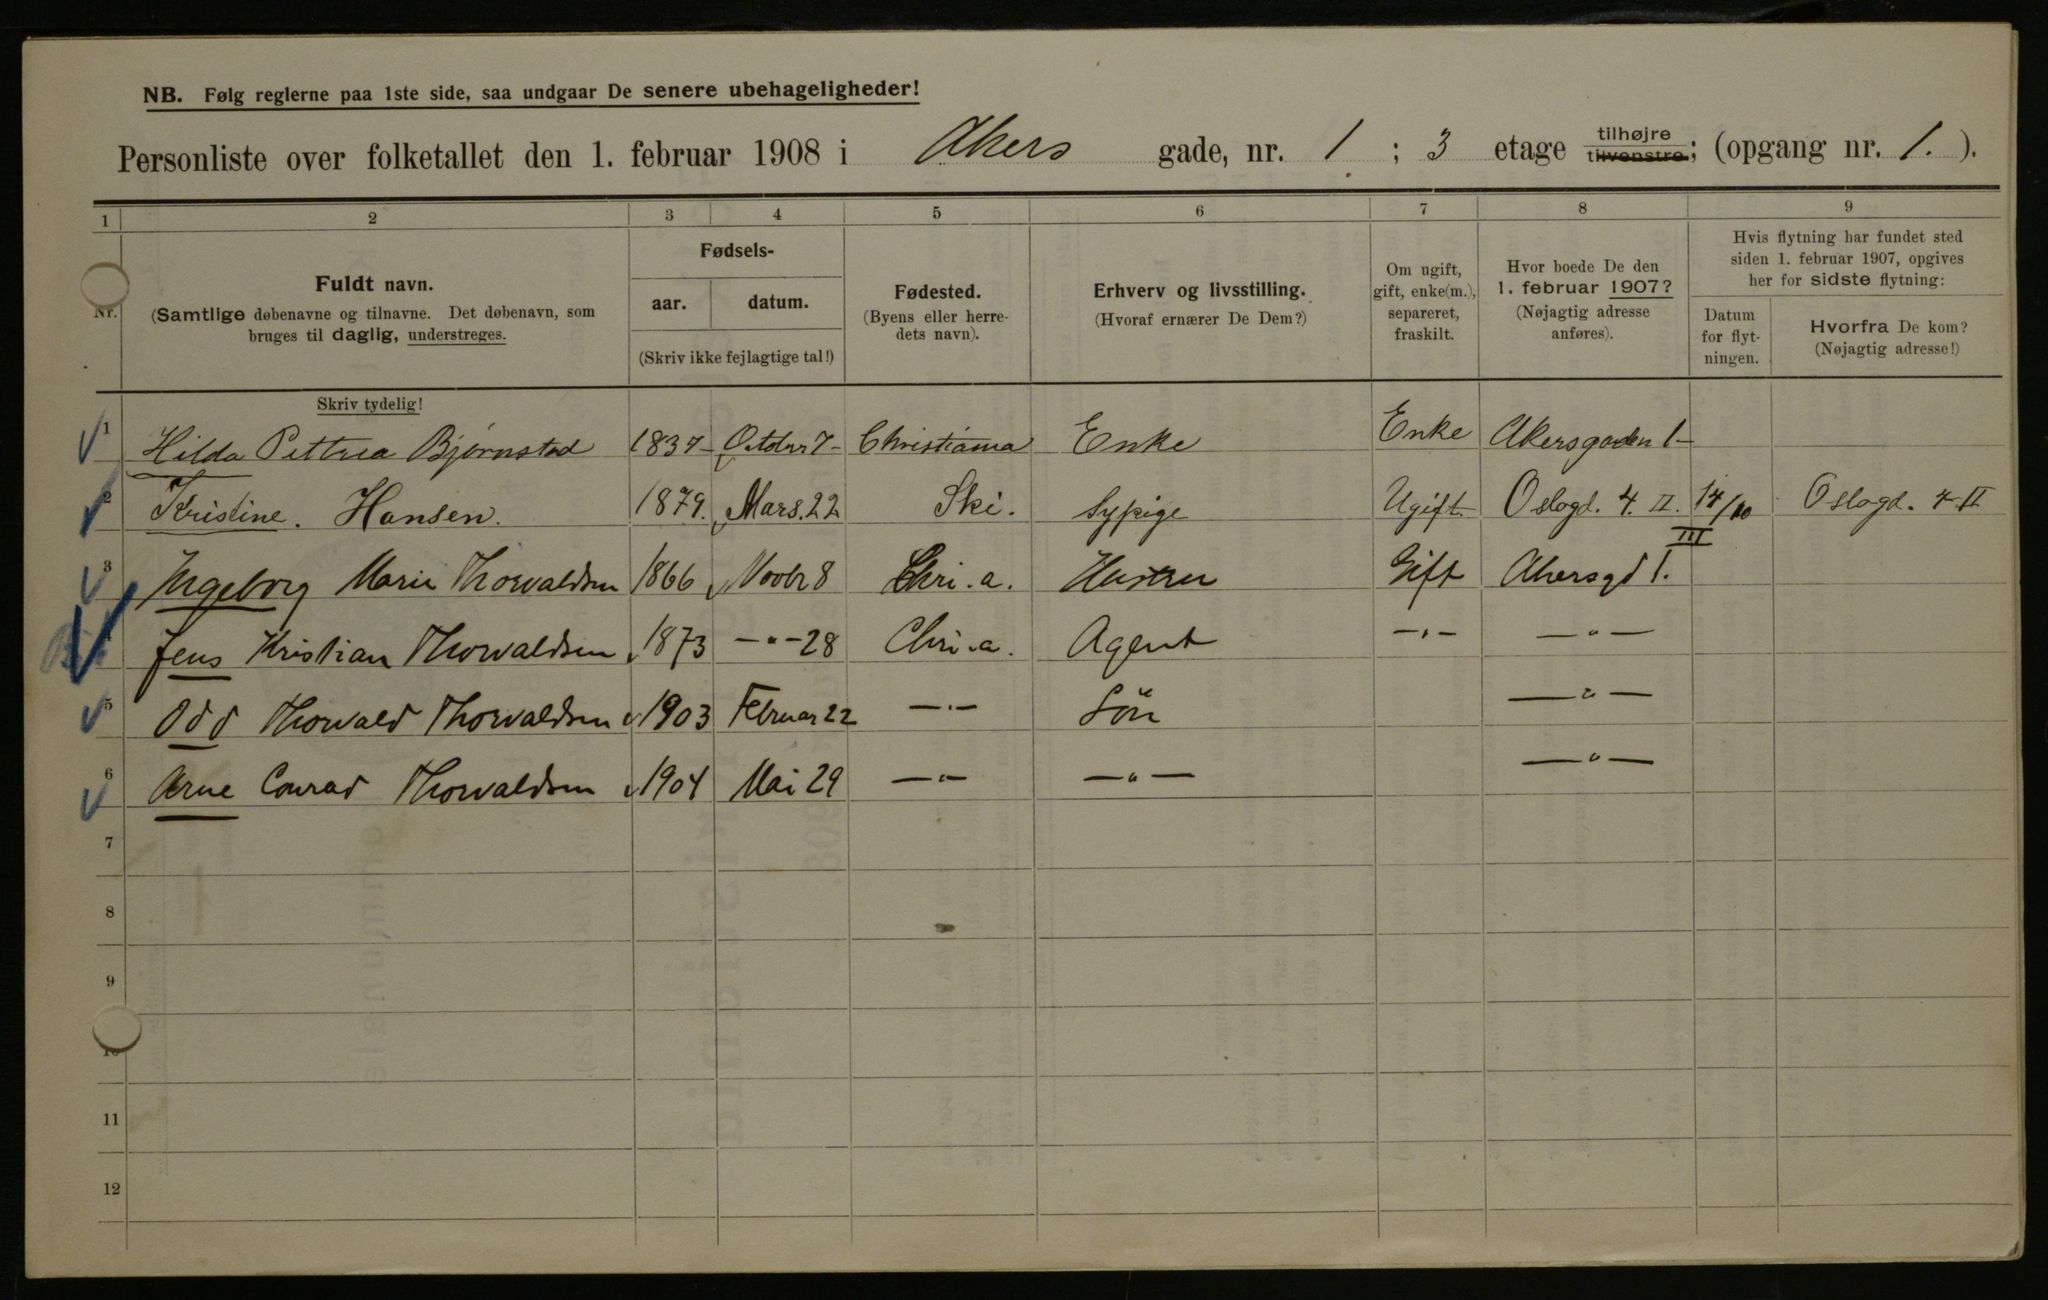 NB. Følg reglerne paa 1ste side, saa undgaar De senere ubehageligheder!
Personliste over folketallet den 1. februar 1908 i Akers gade, nr. 1 ; 3 etage tilhøjre tilvenstre; (opgang nr. 1. ).
1 2 3 4 5 6 7 8 9
Nr.
Fuldt navn.
(Samtlige døbenavne og tilnavne. Det døbenavn, som
bruges til daglig, understreges.
Skriv tydelig!
Fødsels-
aar. datum.
(Skriv ikke fejlagtige tal!)
Fødested.
(Byens eller herre-
dets navn).
Erhverv og livsstilling.
(Hvoraf ernærer De Dem?)
Om ugift,
gift, enke(m.),
separeret,
fraskilt.
Hvor boede De den
1. februar 1907?
(Nøjagtig adresse
anføres).
Hvis flytning har fundet sted
siden 1. februar 1907, opgives
her for sidste flytning:
Datum
for flyt-
ningen.
Hvorfra De kom?
(Nøjagtig adresse!)
1 Hilda Pettrea Bjørnstad 1837 - October 7 - Christiania Enke Enke Akersgaden 1 -
2 Kristine. Hansen. 1879. Mars. 22 Ski. Sypige Ugift. Oslogd. 4. II. 14/10 Oslogd. 4 II
3 Ingeborg Marie Thorvaldsen 1866 Novbr 8 Chri.a. Hustru Gift Akersgd 1. III
4 Jens Kristian Thorvaldsen 1873 —"— 28 Chri.a. Agent —"— —"—
5 Odd Thorvald Thorvaldsen 1903 Februar 22 —"— Søn —"—
6 Arne Conrad Thorvaldsen 1904 Mai 29 —"— —"— —"—
7
8
9
10
11
12